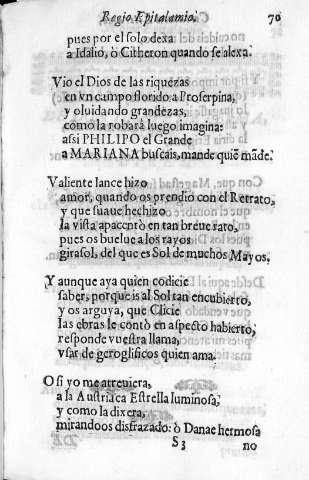 Regio Epitalamio. 70
pues por el solo dexa
a Idalio, ò Citheron quando se alexa.
Vio el Dios de las riquezas
en vn campo florido a Proserpina,
y oluidando grandezas,
como la robarà luego imagina:
assi PHILIPO el Grande
a MARIANA buscais, mande quiẽ mãde.
Valiente lance hizo
amor, quando os prendio con el Retrato,
y que suaue hechizo
la vista apacentò en tan breue rato,
pues os buelue a los rayos
girasol, del que es Sol de muchos Mayos.
Y aunque aya quien codicie
saber, porque is al Sol tan encubierto,
y os arguya, que Clicie
las obras le contò en aspecto habierto,
responde vuestra llama,
vsar de geroglificos quien ama.
O si yo me atreuiera,
a la Austriaca Estrella luminosa,
y como la dixera,
mirandoos disfrazado: ò Danae hermosa
S3 no